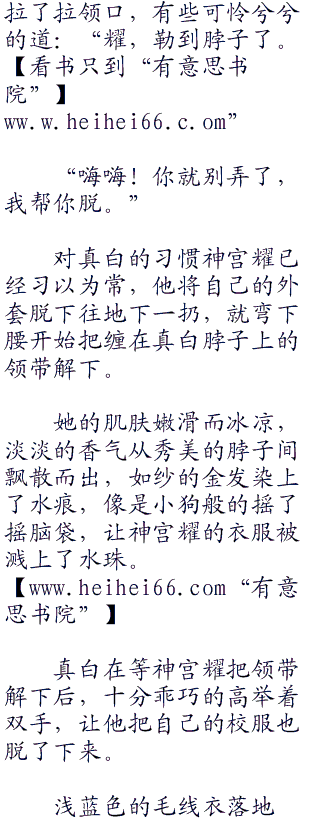 拉了拉领口，有些可怜兮兮
的道：“耀，勒到脖子了。
【看书只到“有意思书
院”】
ww.w.heihei66.c.om”
“嗨嗨！你就别弄了，
我帮你脱。”
对真白的习惯神宫耀已
经习以为常，他将自己的外
套脱下往地下一扔，就弯下
腰开始把缠在真白脖子上的
领带解下。
她的肌肤嫩滑而冰凉，
淡淡的香气从秀美的脖子间
飘散而出，如纱的金发染上
了水痕，像是小狗般的摇了
摇脑袋，让神宫耀的衣服被
溅上了水珠。
【www.heihei66.com“有意
思书院”】
真白在等神宫耀把领带
解下后，十分乖巧的高举着
双手，让他把自己的校服也
脱了下来。
浅蓝色的毛线衣落地